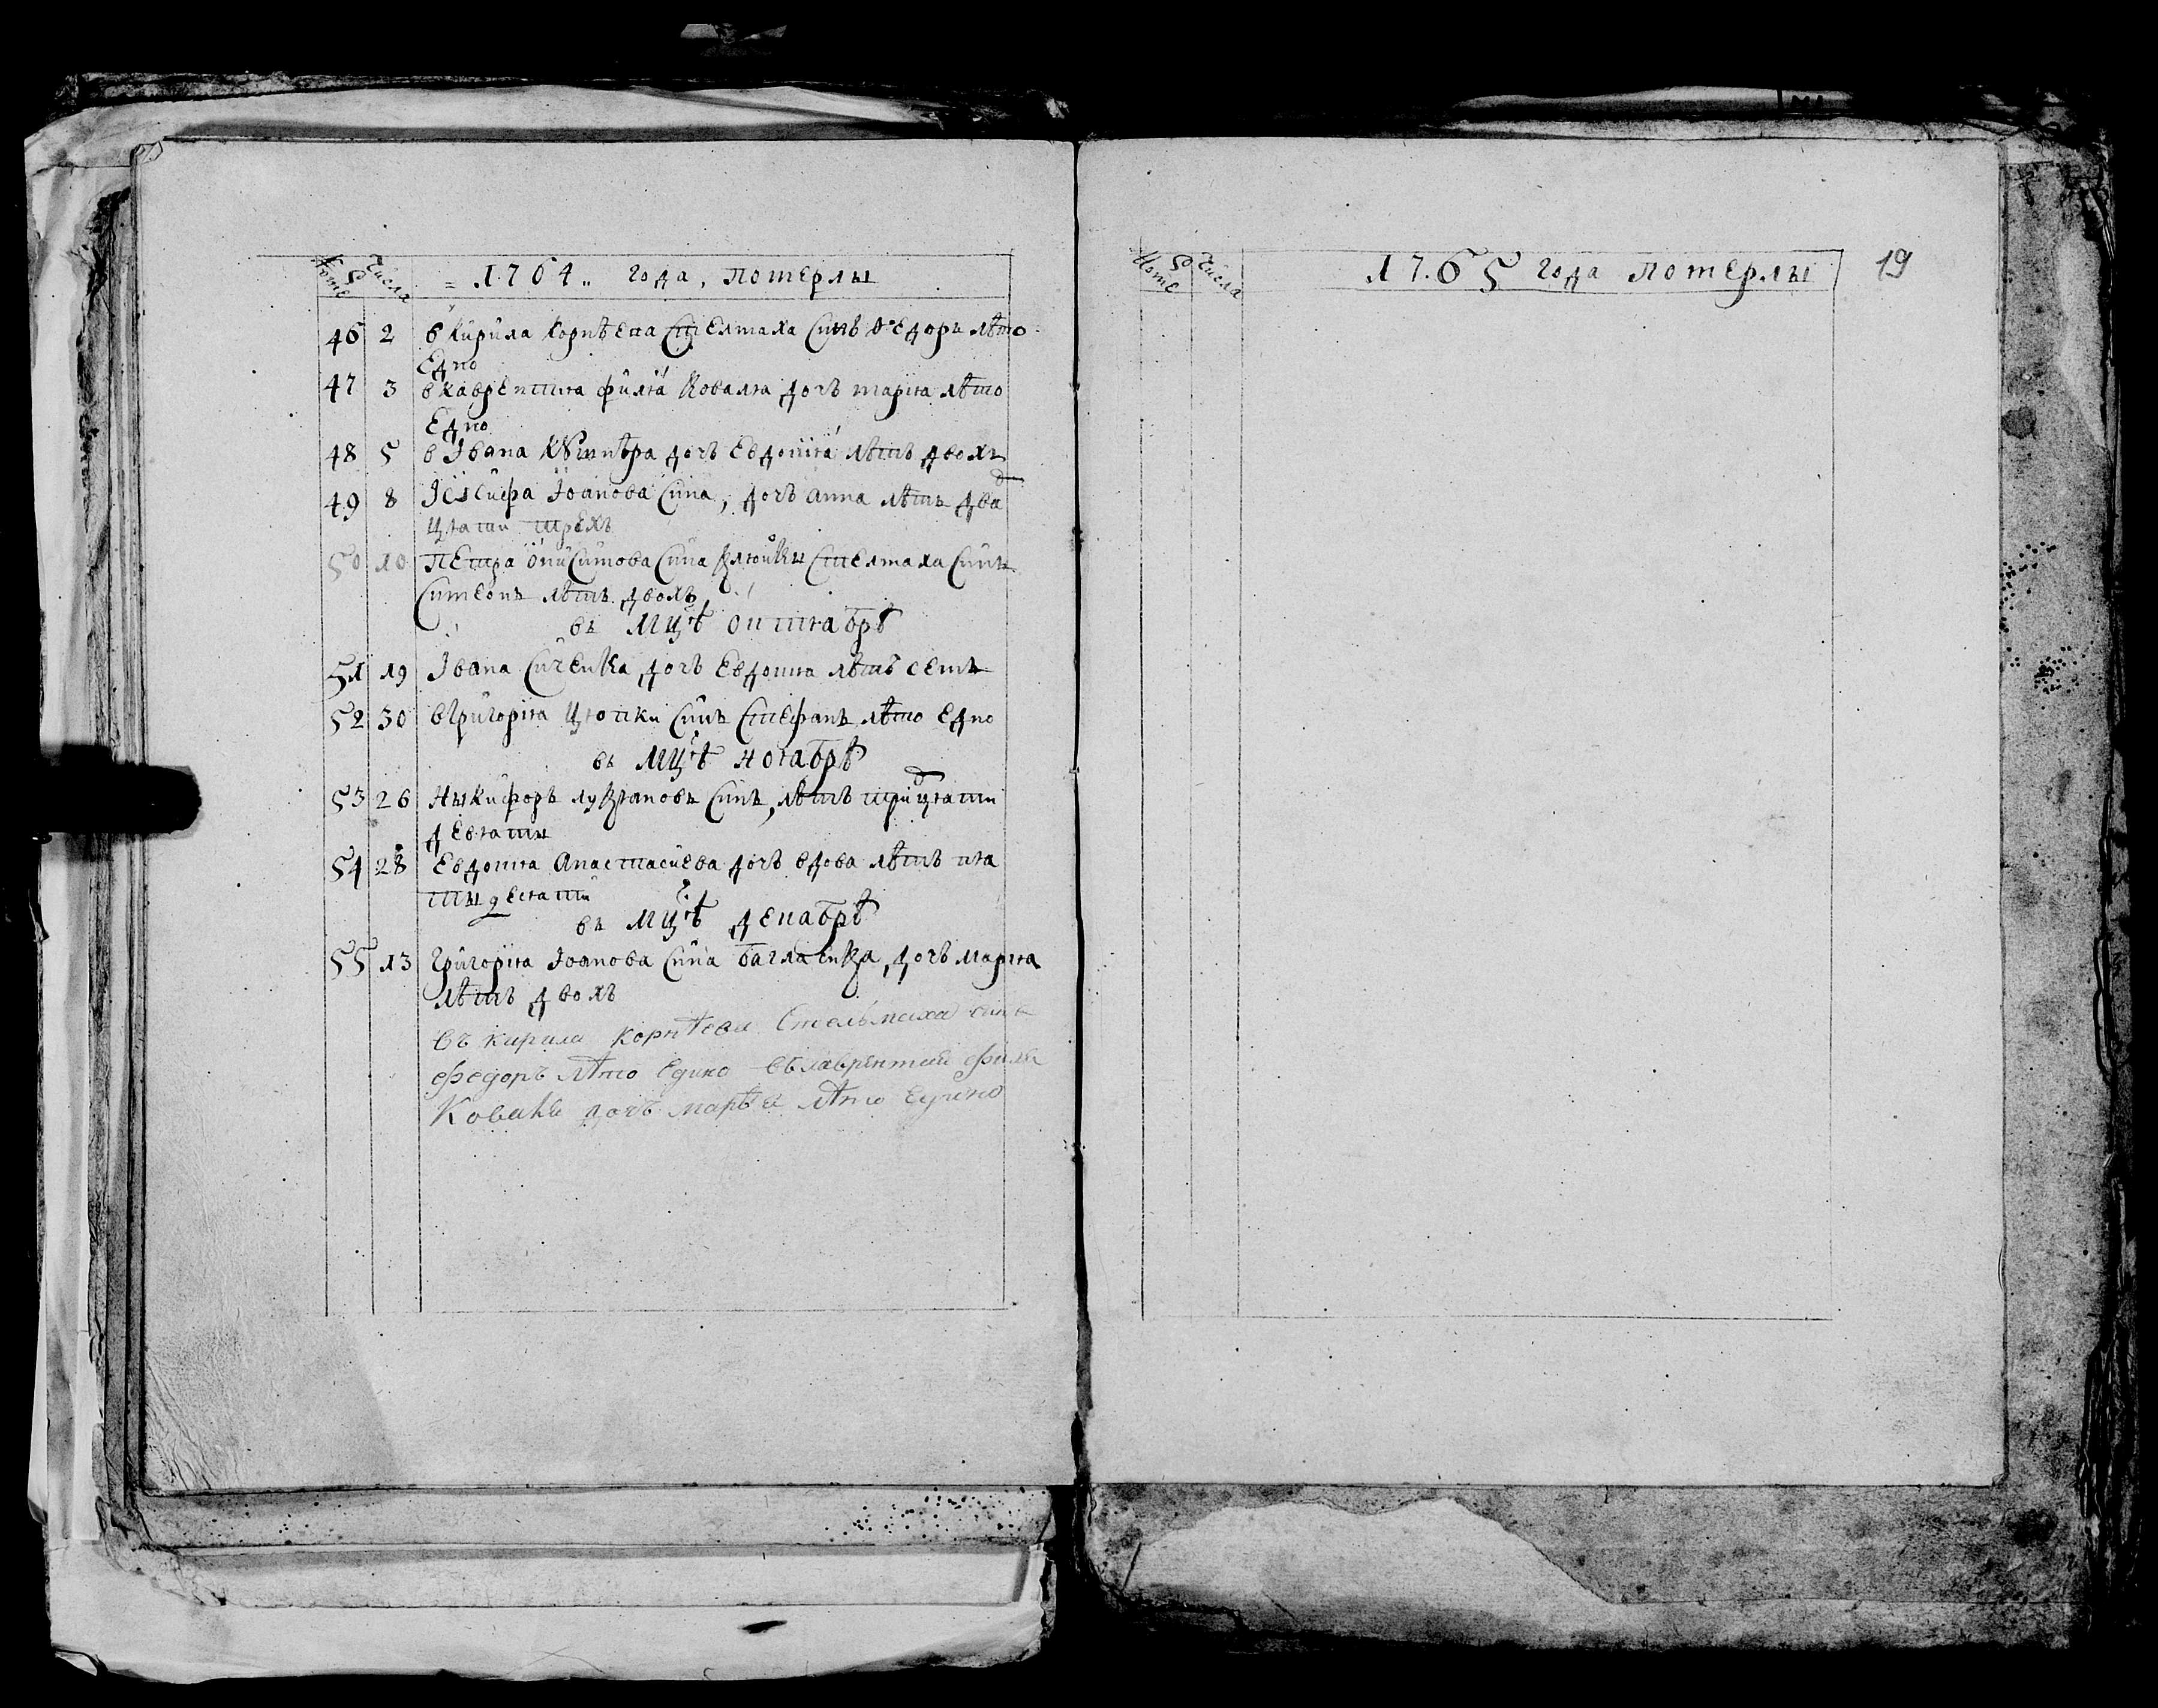 Числа
= 1764 „ года, померлы
46 2 в Кирила Корнѣева Стелмаха Синъ Ѳедоръ лѣто
Едно
47 3 в Лаврентия Филїа Ковалѧ дочъ мария лѣто
Едно
48 5 в Івана дочъ Евдокия лѣтъ двохъ
49 8 Іѡсифа Іоанова Сина, дочъ анна лѣтъ два
цѧти трехъ
50 10 Петра Онисимова Сина Стелмаха Синъ
Симеонъ лѣтъ двохъ
въ мцѣ октѧбрѣ
51 19 Івана Сиченка, дочъ Евдокия лѣтъ семъ
52 30 в Григорїѧ Цюпки Синъ Стефанъ лѣто едно
въ мцѣ ноѧбрѣ
53 26 Никифоръ Лукѧновъ Синъ, лѣтъ трицѧти
девѧти
54 28 Евдокия Анастасиева дочъ вдова лѣтъ пѧ
тыдесѧти
въ мцѣ декабрѣ
55 13 Григорїѧ Іоанова Сина Баглаенка, дочъ Марїѧ
лѣтъ двохъ
въ кирила корнѣева Стельмаха синъ
Федоръ лѣто Едино въ лаврентия филѧ
Ковалѧ дочъ марѣя лѣто Едино
Числа
1765 года померлы
19